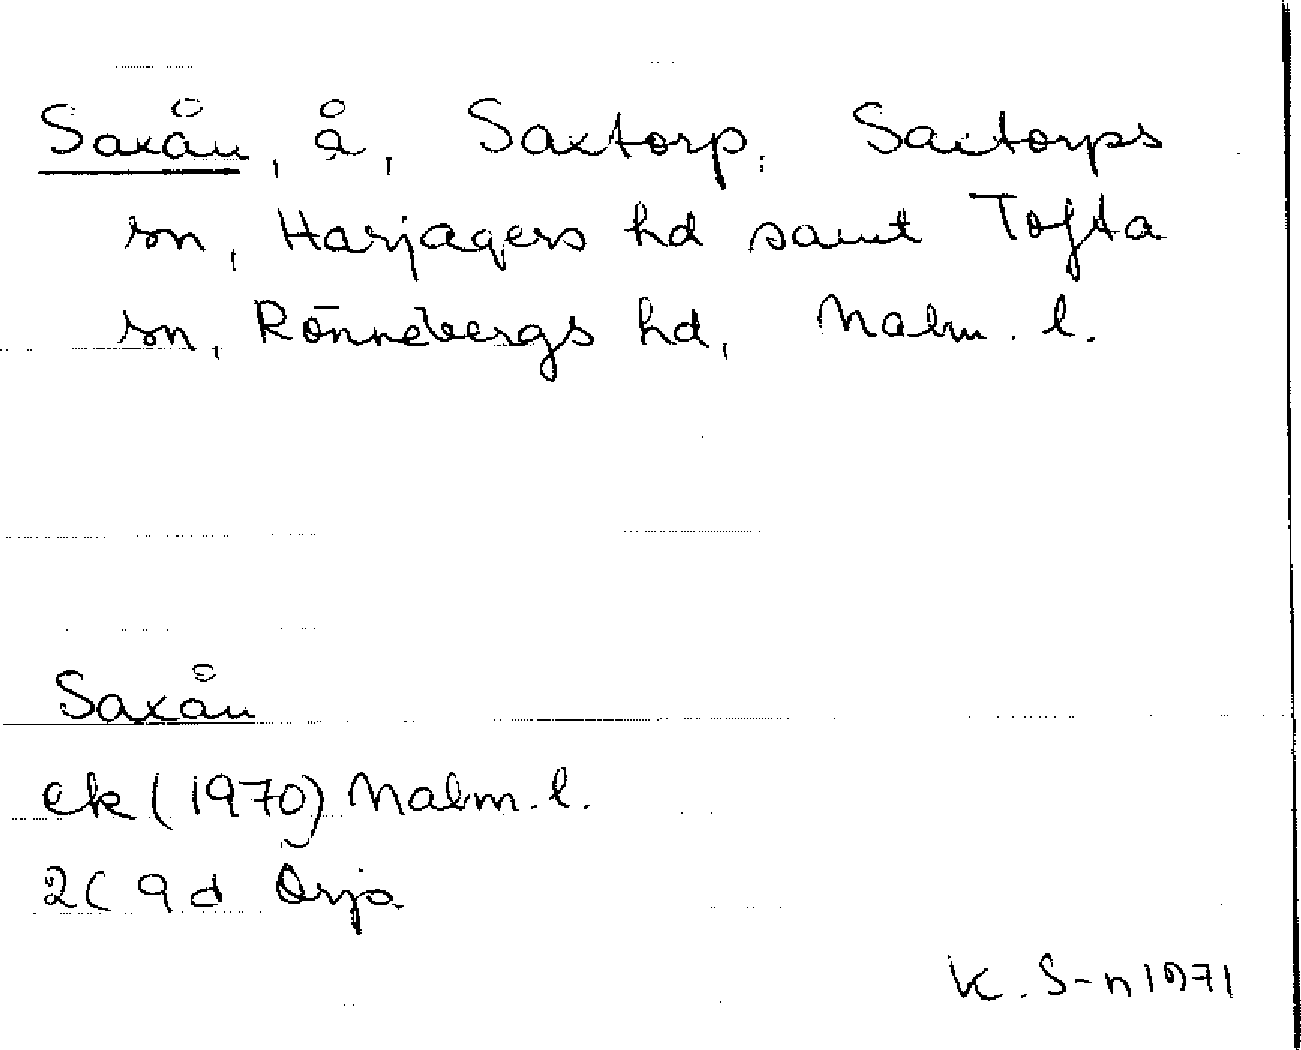 Saxån, å, Saxtorp, Saxtorps
sn, Harjagers hd samt Tofta
sn, Rönnebergs hd, Malm. l.
Saxån
ek (1970) Malm. l.
2C 9d Örja
K. S-n 1971